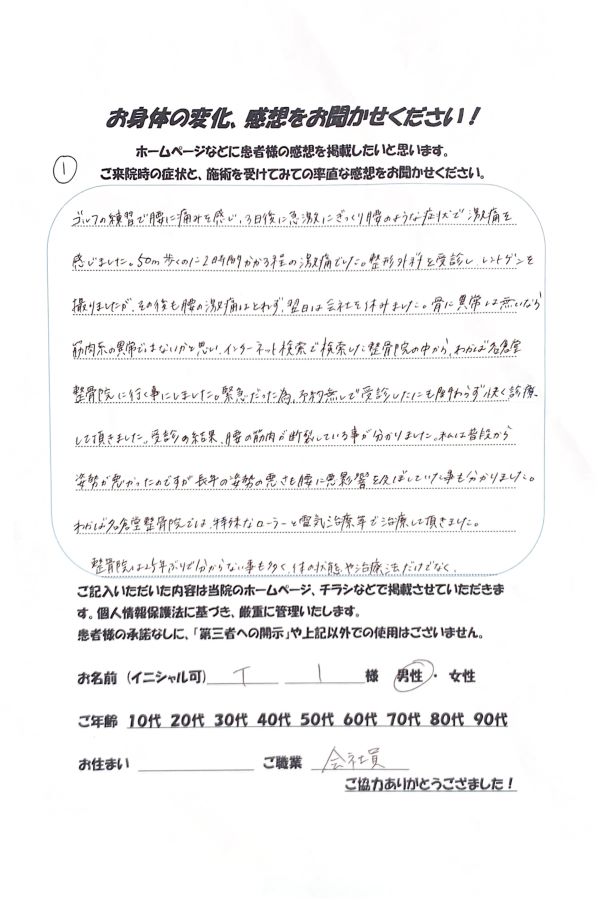 お身体の変化、感想をお聞かせください！
ホームページなどに患者様の感想を掲載したいと思います。
①
ご来院時の症状と、施術を受けてみての率直な感想をお聞かせください。
ゴルフの練習で腰に痛みを感じ、3日後に急激にぎっくり腰のような症状で激痛を
感じました。50m歩くのに2時間かかる程の激痛でした。整形外科を受診し、レントゲンを
撮りましたが、その後も腰の激痛はとれず、翌日は会社を休みました。骨に異常は無いなら
筋肉系の異常ではないかと思い、インターネット検索で検索した整骨院の中から、わかば名倉堂
整骨院に行く事にしました。緊急だった為、予約無しで受診したにも関わらず快く診療
して頂きました。受診の結果、腰の筋肉が断裂している事が分かりました。私は普段から
姿勢が悪かったのですが長年の姿勢の悪さも腰に悪影響を及ぼしていた事も分かりました。
わかば名倉堂整骨院では、特殊なローラーと電気治療等で治療して頂きました。
整骨院は25年ぶりで分からない事も多く、体の状態や治療法だけでなく、
ご記入いただいた内容は当院のホームページ、チラシなどで掲載させていただきま
す。個人情報保護法に基づき、厳重に管理いたします。
患者様の承諾なしに、「第三者への開示」や上記以外での使用はございません。
お名前（イニシャル可） T I 様 男性・女性
ご年齢 10代 20代 30代 40代 50代 60代 70代 80代 90代
お住まい ご職業 会社員
ご協力ありがとうござました！